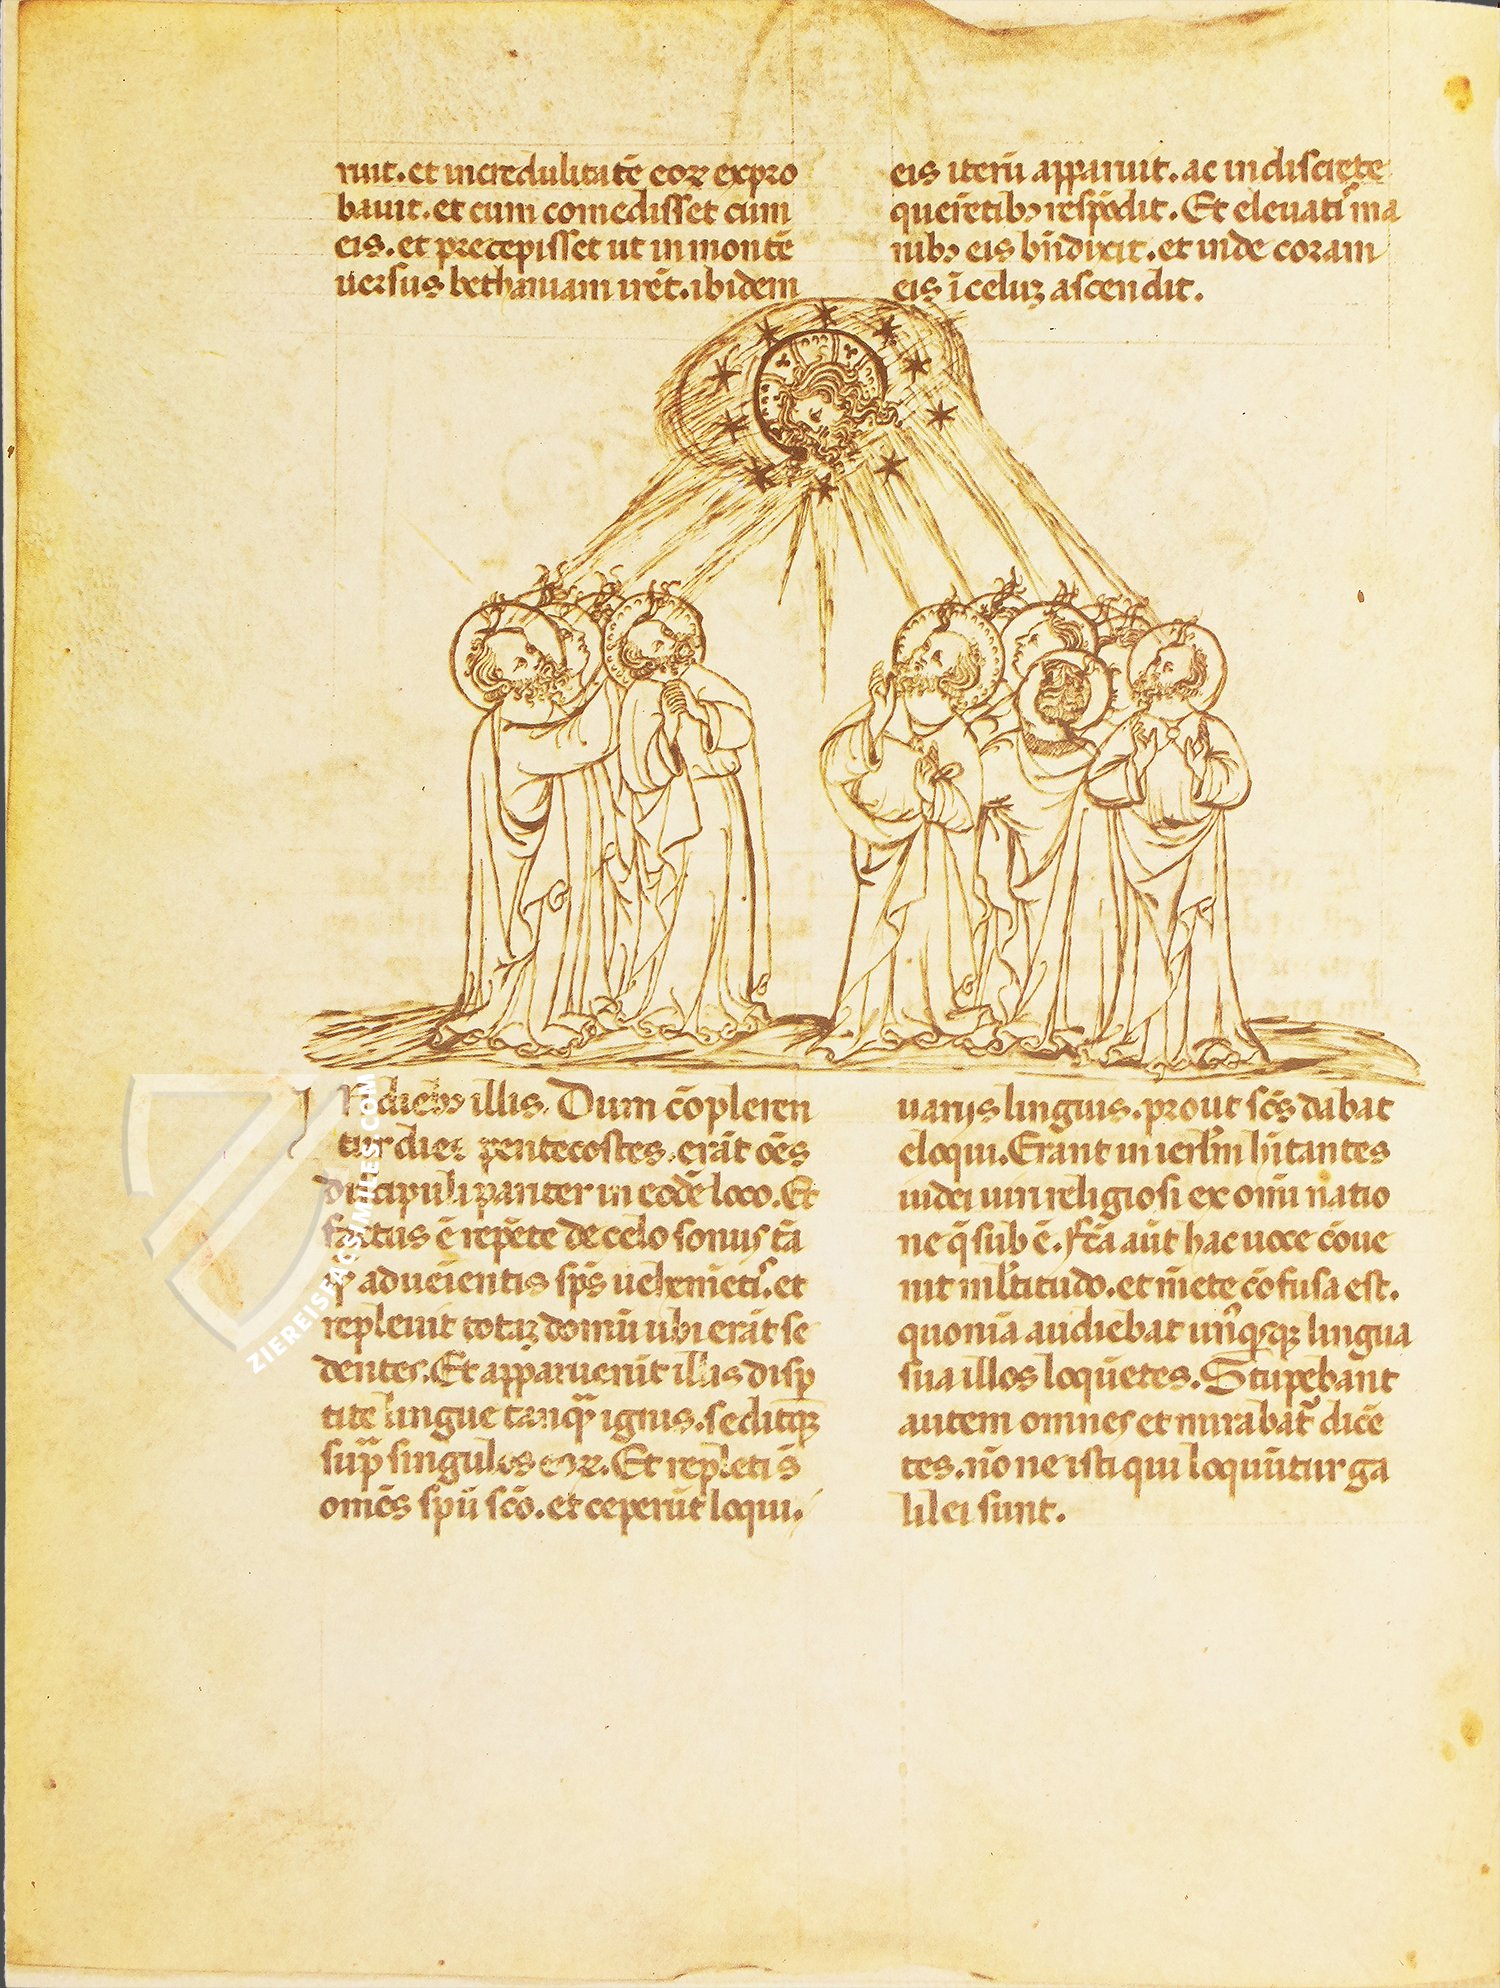 ruit. et incredulitatē eoꝝ expro
bauit. et cum comedisset cum
eis. et precepisset ut in montē
uersus bethaniam irēt. ibidem
eis iterū apparuit. ac indiscrete
querētibꝰ respōdit. Et eleuatis ma
nibꝰ eis bn̄dixit. et inde coram
eis ī celuꝫ ascendit.
In diebꝰ illis. Dum cōpleren
tur dies pentecostes. erāt oēs
discipuli pariter in eodē loco. Et
factus ē repēte de celo sonus tā
ꝙ aduēientis sp̄s uehemētis. et
repleuit totaꝫ domū ubi erāt se
dentes. Et apparuerūt illis disp
tite lingue tanqᷓ ignis. seditqꝫ
supᷓ singulos eoꝝ. Et repleti s̄
om̄s sp̄u sc̄o. et ceperūt loqui.
uarijs linguis. prout sc̄s dabat
eloqui. Erant in ierl̄m hītantes
iudei uiri religiosi ex om̄i natio
ne q̄ sub ē. fc̄a aūt hac uoce cōue
nit ml̄titudo. et mēte cōfusa est.
quoniā audiebat unꝰqisqꝫ lingua
sua illos loquētes. Stupebant
autem omnes et mirabāt᷑ dicē
tes. nōne isti qui loquūtur ga
lilei sunt.
ZIEREISFACSIMILES.COM